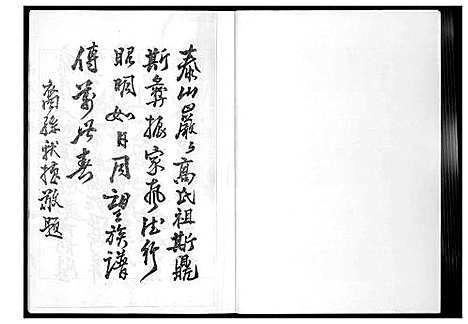 泰山巖々高氏祖斯鼎
斯彝振家教法行
昭明如日月望族譜
傳萬世春
裔孫 敬題